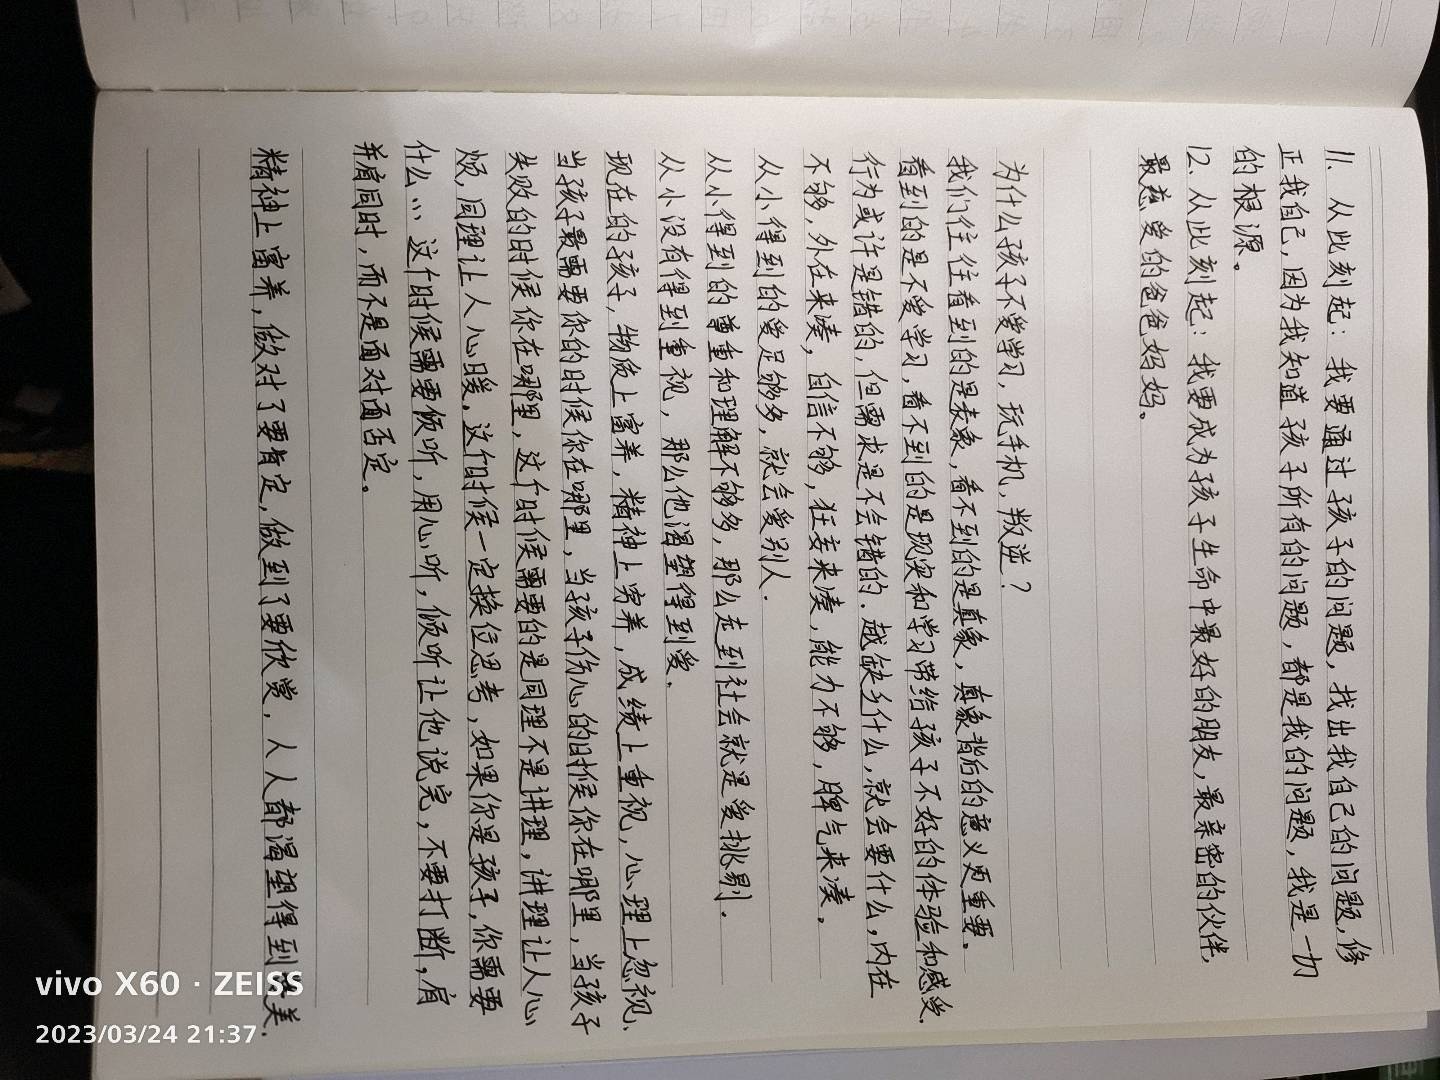 11. 从此刻起：我要通过孩子的问题，找出我自己的问题，修
正我自己，因为我知道孩子所有的问题，都是我的问题，我是一切
的根源。
12. 从此刻起：我要成为孩子生命中最好的朋友，最亲密的伙伴，
最慈爱的爸爸妈妈。
为什么孩子不爱学习，玩手机，叛逆？
我们往往看到的是表象，看不到的是真象，真象背后的意义更重要。
看到的是不爱学习，看不到的是现实和学习带给孩子不好的体验和感受.
行为或许是错的，但需求是不会错的. 越缺乡什么，就会要什么，内在
不够，外在来凑，自信不够，狂妄来凑，能力不够，脾气来凑。
从小得到的爱足够多，就会爱别人.
从小得到的尊重和理解不够多，那么走到社会就是爱挑剔.
从小没有得到重视，那么他渴望得到爱.
现在的孩子，物质上富养，精神上穷养，成绩上重视，心理上忽视.
当孩子最需要你的时候你在哪里，当孩子伤心的时候你在哪里，当孩子
失败的时候你在哪里，这个时候需要的是同理不是讲理，讲理让人心
烦，同理让人心暖，这个时候一定换位思考，如果你是孩子，你需要
什么… 这个时候需要倾听，用心听，倾听让他说完，不要打断，肩
并肩同时，而不是面对面否定。
精神上富养，做对了要肯定，做到了要欣赏，人人都渴望得到美.
vivo X60 · ZEISS
2023/03/24 21:37